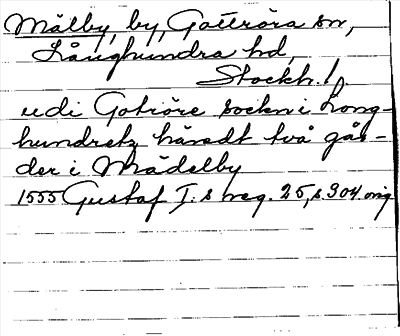 Målby, by, Gottröra sn,
Långhundra hd,
Stockh. l.
udi Gotröre sockn i Long-
hundretz häredt två går-
der i Mädelby
1555 Gustaf I.s reg. 25, s. 304 orig